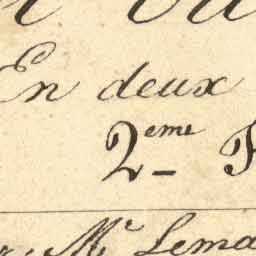 En deux
2eme
Mr Lema